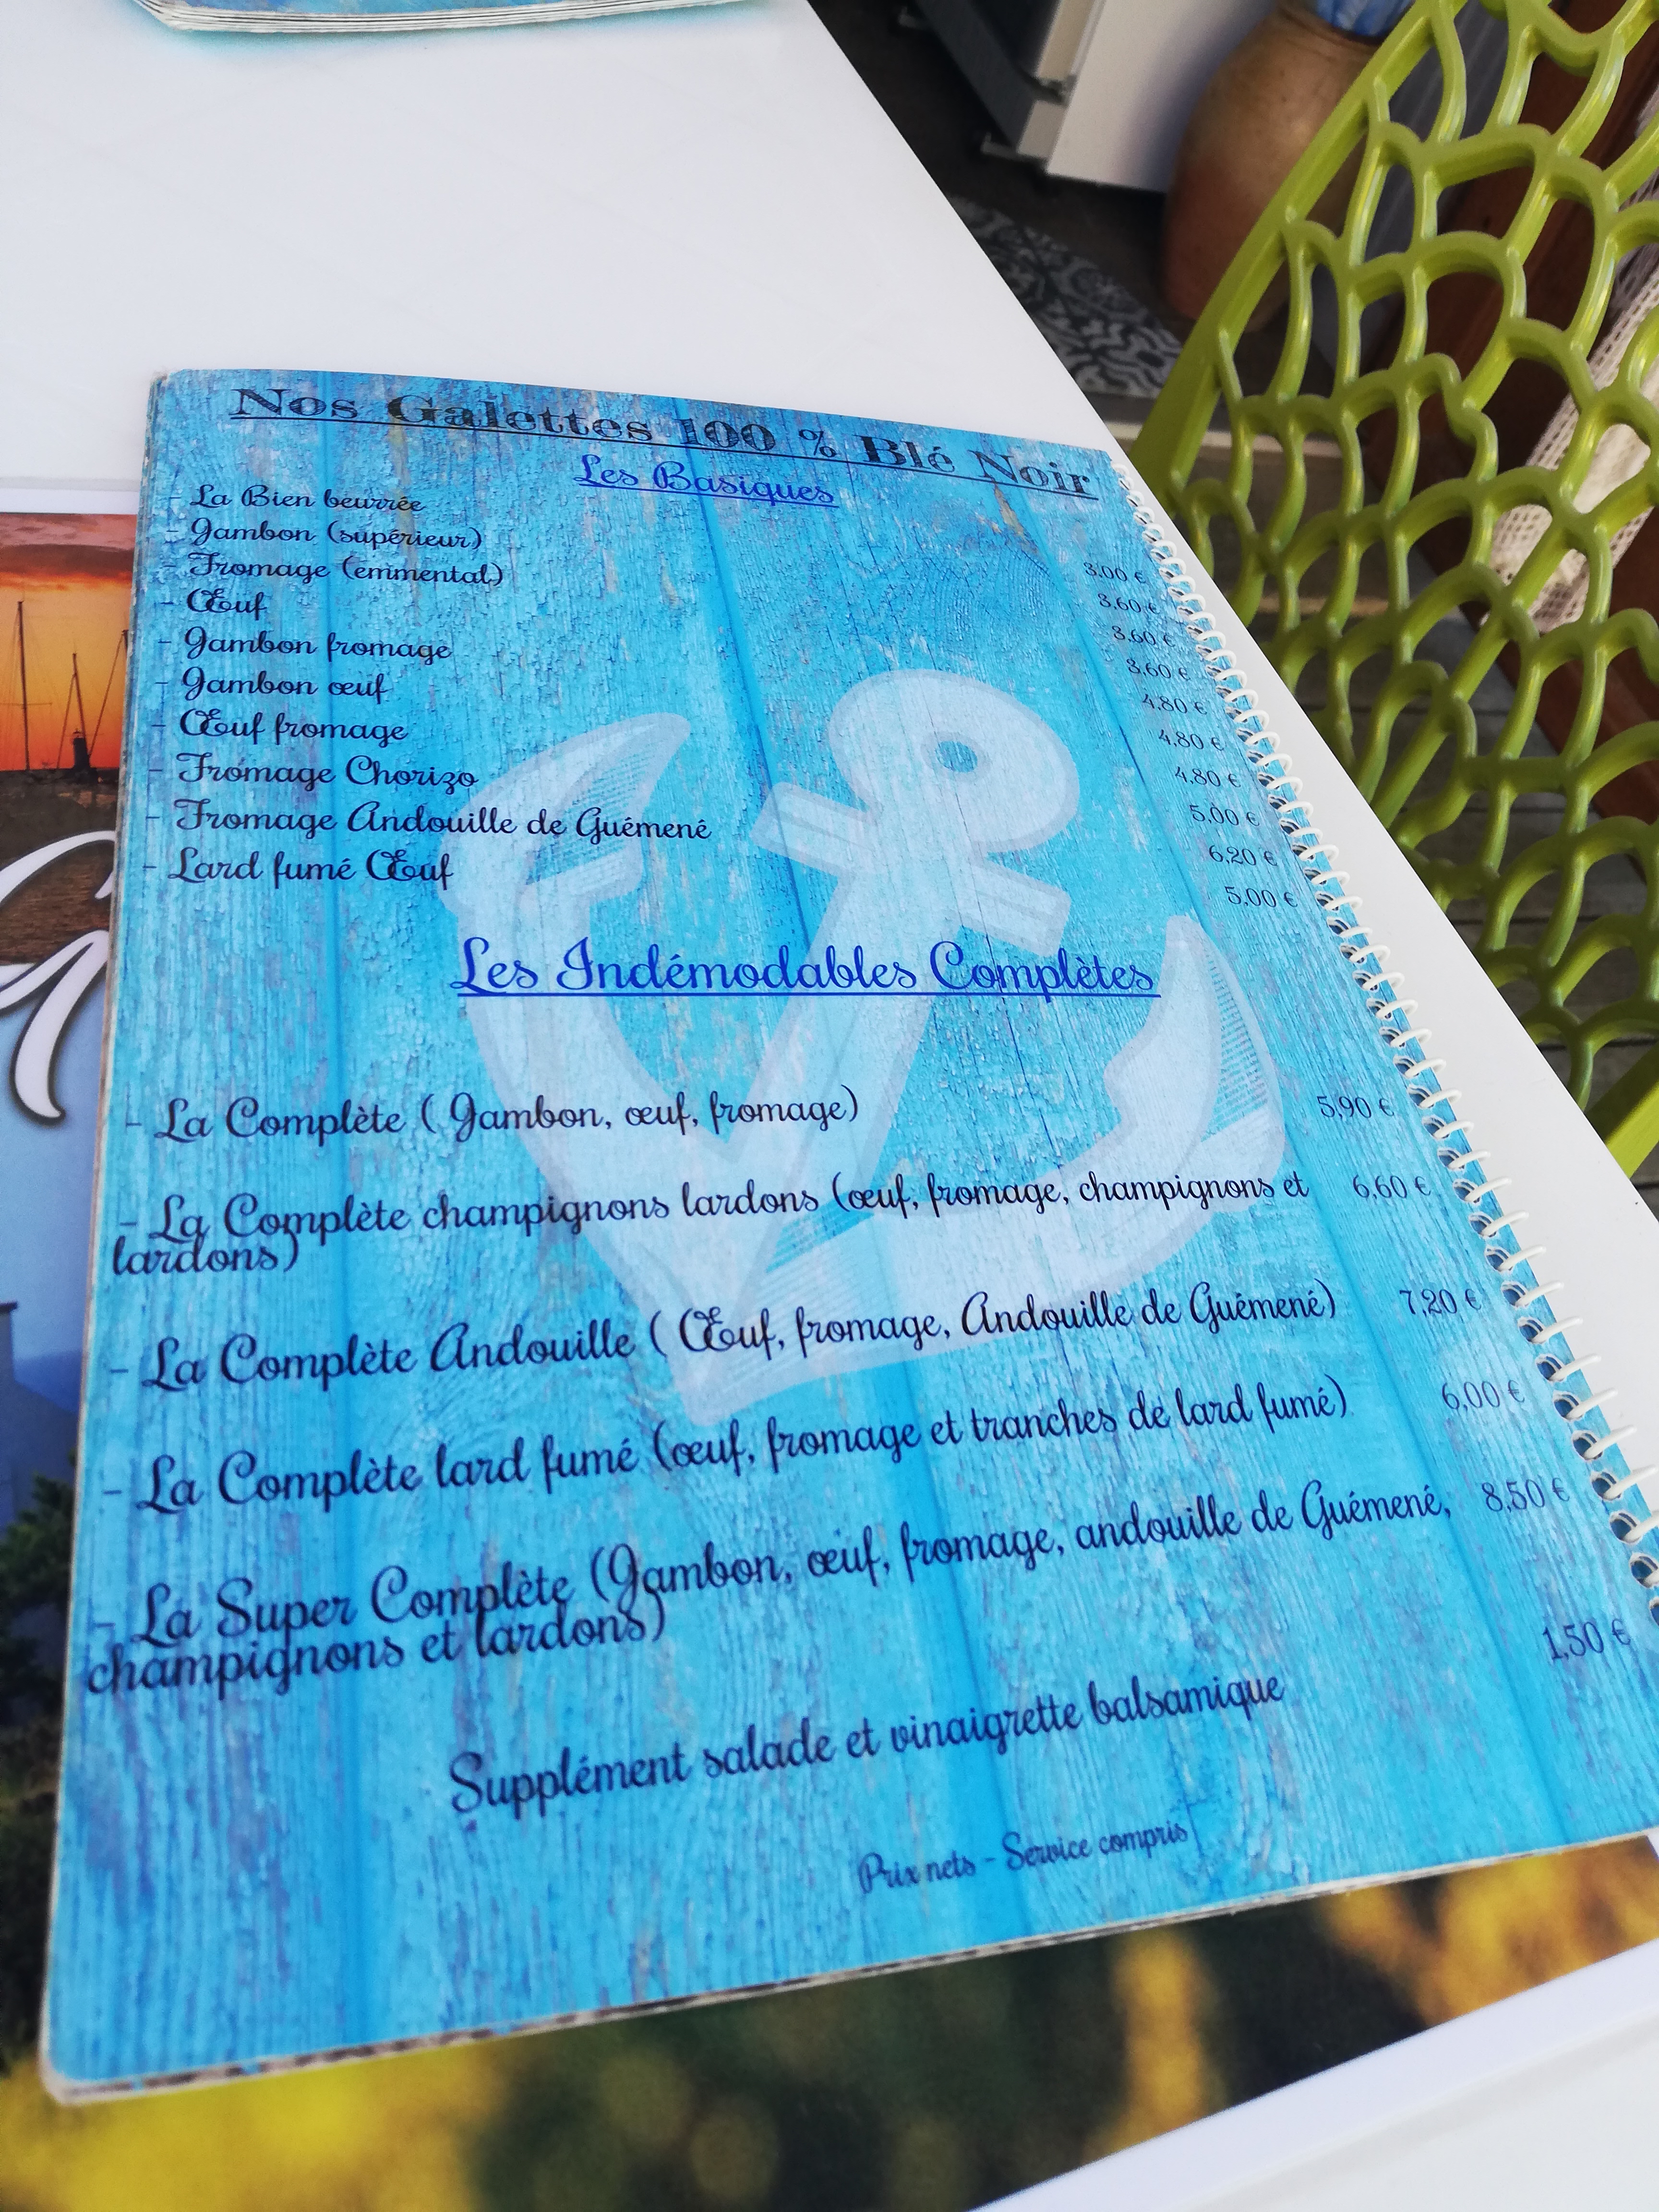 Nos Galettes 100 % Blé Noir
Les Basiques
- La Bien beurrée 3,00 €
- Jambon (supérieur) 3,60 €
- Fromage (emmental) 3,60 €
- Œuf 3,60 €
- Jambon fromage 4,80 €
- Jambon œuf 4,80 €
- Œuf fromage 4,80 €
- Fromage Chorizo 5,00 €
- Fromage Andouille de Guémené 6,20 €
- Lard fumé Œuf 5,00 €
Les Indémodables Complètes
- La Complète ( Jambon, œuf, fromage) 5,90 €
- La Complète champignons lardons (œuf, fromage, champignons et 6,60 €
lardons)
- La Complète Andouille ( Œuf, fromage, Andouille de Guémené) 7,20 €
- La Complète lard fumé (œuf, fromage et tranches de lard fumé) 6,00 €
- La Super Complète (Jambon, œuf, fromage, andouille de Guémené, 8,50 €
champignons et lardons)
Supplément salade et vinaigrette balsamique 1,50 €
Prix nets - Service compris